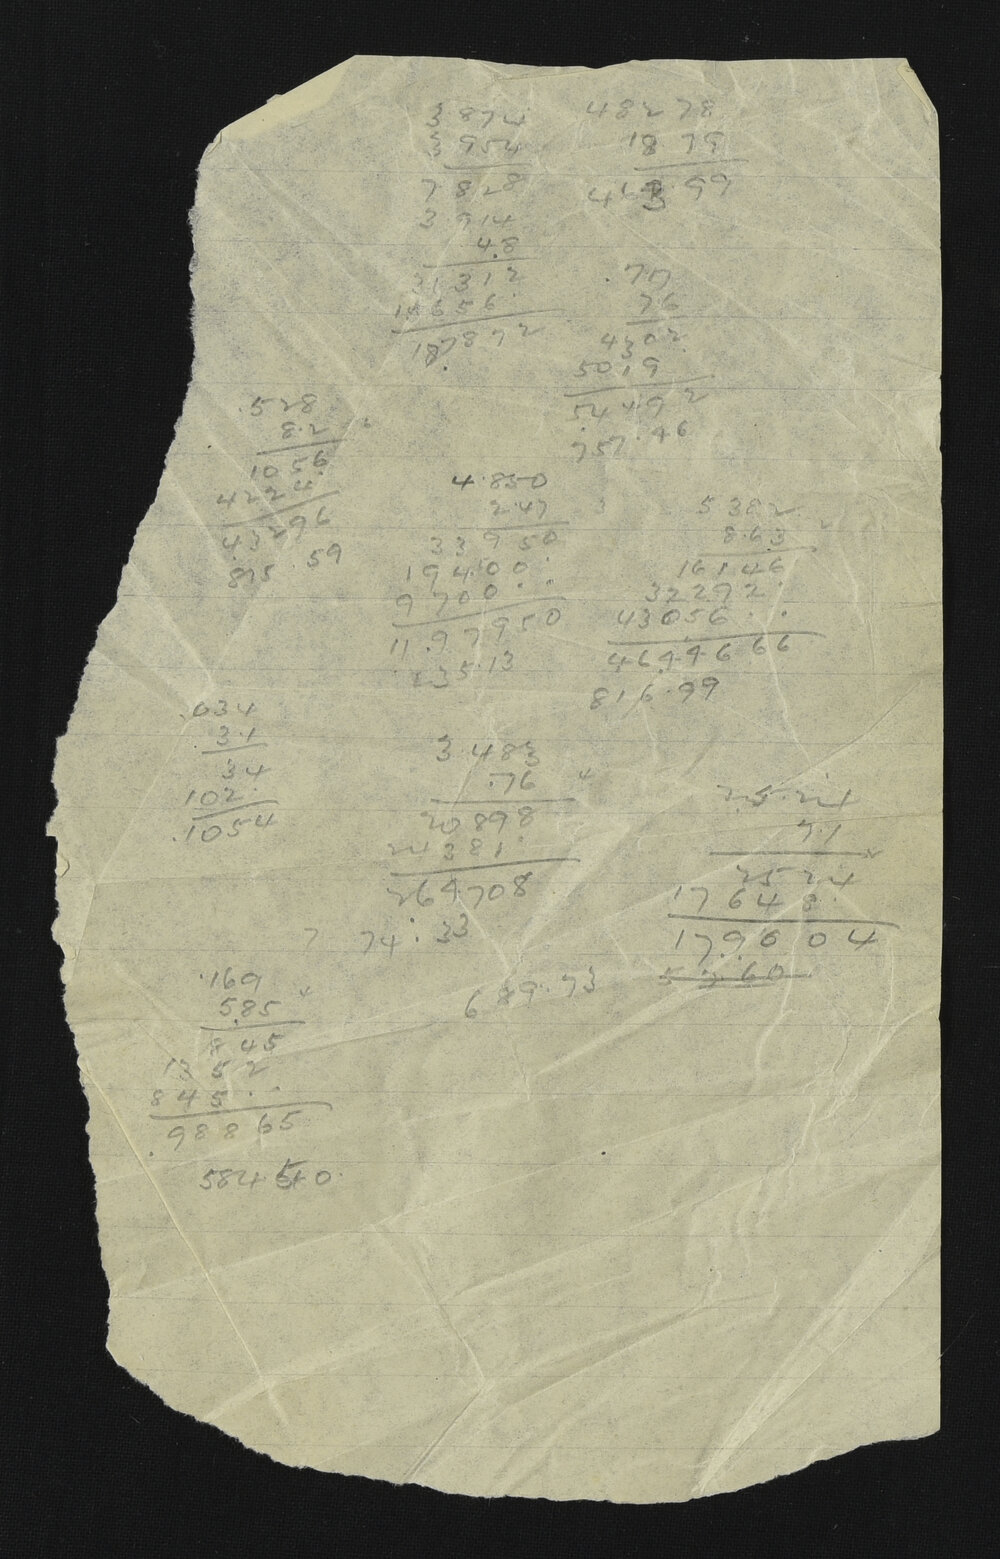 3 874
3 954
7 828
3.914
4.8
31 312
15656.
187872
48278
1879
463.99
.717
76
4302
5019
54492
757.46
.528
8.2
1056
4224.
43296
875.59
4.850
2.47
33950
19400.
9700..
11.97950
135.13
5382
8.63
16146
32292.
43056..
46.44666
816.99
.034
3.1
34
102.
.1054
3.483
.76
20898
24381.
264708
74.33
25.24
7.1
2524
17668.
179604
5760
.169
5.85
845
1352
845..
.98865
689.73
584.50.